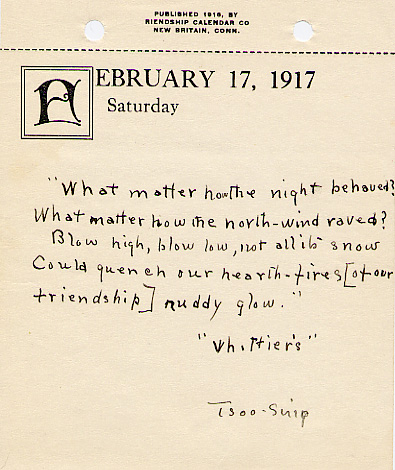 PUBLISHED 1916, BY
RIENDSHIP CALENDAR CO
NEW BRITAIN, CONN.
FEBRUARY 17, 1917
Saturday
"What matter how the night behaved?
What matter how the north-wind raved?
Blow high, blow low, not all its snow
Could quench our hearth-fires [of our
friendship] ruddy glow."
"Whittier's"